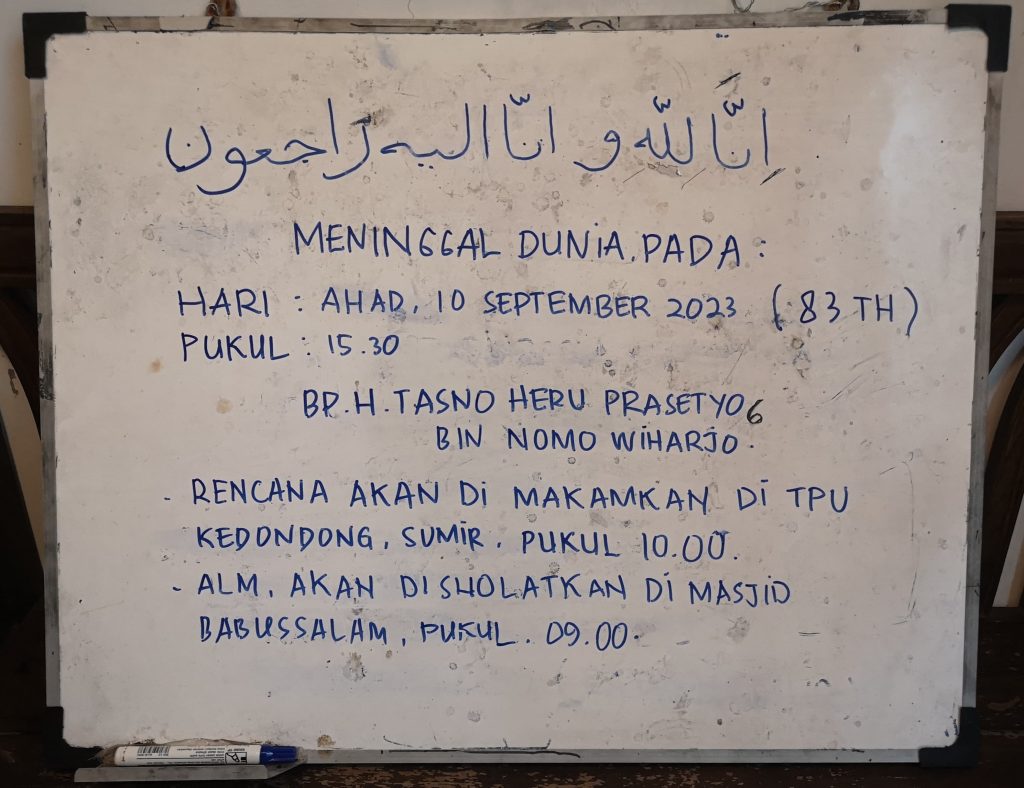 اِنَّا لِلّٰهِ و انّا اليه رَاجعون
MENINGGAL DUNiA. PADA :
HARI : AHAD, 10 SEPTEMBER 2023 (83 TH)
PUKUL : 15.30
BP. H. TASNO HERU PRASETYO 6
BIN NOMO WiHARJO.
- RENCANA AKAN Di MAKAMKAN Di TPU
KEDONDONG, SUMiR. PUKUL 10.00.
- ALM. AKAN DISHOLATKAN Di MASJiD
BABUSSALAM, PUKUL. 09.00.